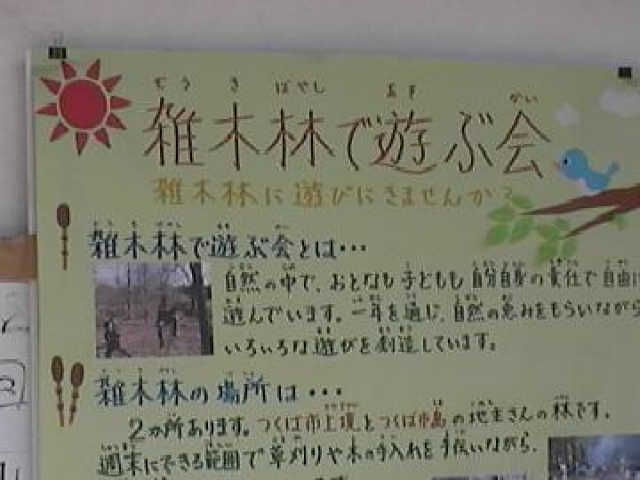 ぞうきばやし あそ かい
雑木林で遊ぶ会
雑木林に遊びにきませんか?
雑木林で遊ぶ会とは・・・
自然の中で、おとなも子どもも自分自身の責任で自由に
遊んでいます。一年を通じ、自然の恵みをもらいながら
いろいろな遊びを創造しています。
雑木林の場所は・・・
2ヵ所あります。つくば市上境とつくば市島の地主さんの林です。
週末にできる範囲で草刈りや木の手入れを手伝いながら、